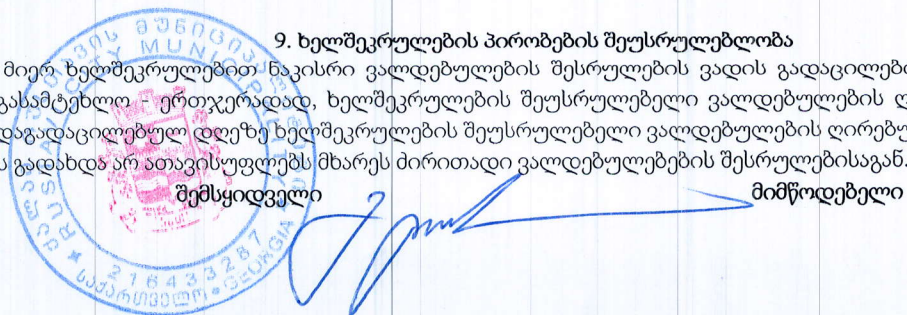 9. ხელშეკრულების პირობების შეუსრულებლობა
მიერ ხელშეკრულებით ნაკისრი ვალდებულების შესრულების ვადის გადაცილები
გასამტეხლო - ერთჯერადად, ხელშეკრულების შეუსრულებელი ვალდებულების ღ
დაგადაცილებულ დღეზე ხელშეკრულების შეუსრულებელი ვალდებულების ღირებუ
გადახდა არ ათავისუფლებს მხარეს ძირითადი ვალდებულებების შესრულებისაგან.
შემსყიდველი მიმწოდებელი
CITY MUN
RUSTAVI
216433287
საქართველო • GEORGIA